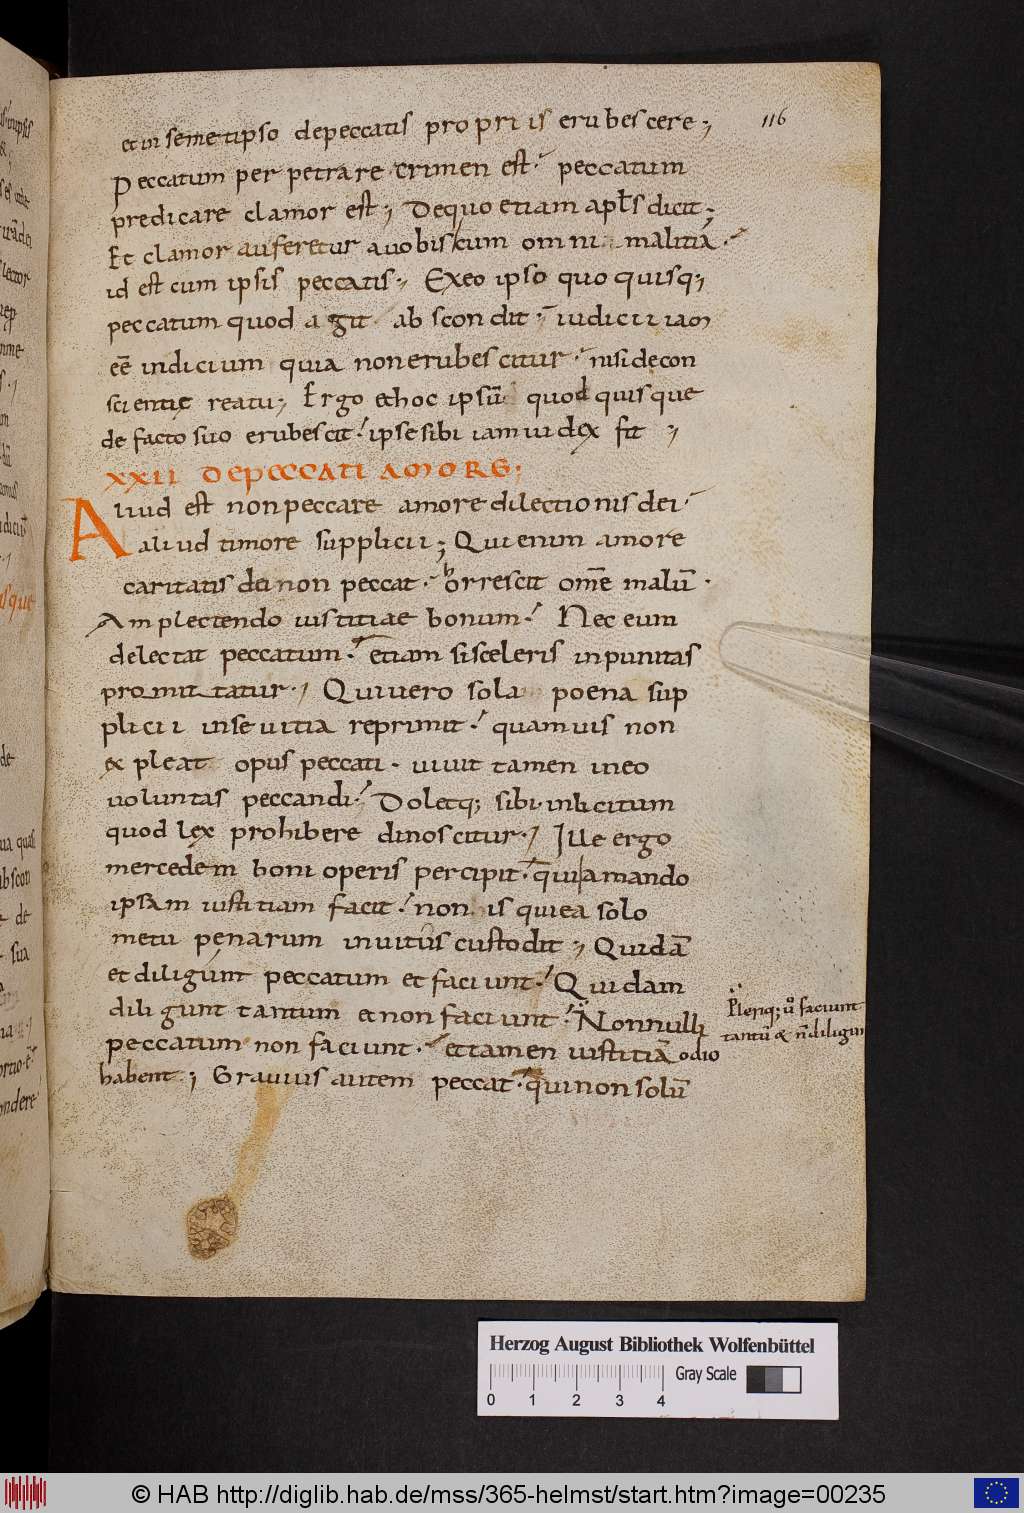 116
et in semetipso de peccatis propriis erubescere;
Peccatum perpetrare crimen est. peccatum
predicare clamor est; De quo etiam apłs dicit;
Et clamor auferetur a uobis cum omni malitia.
id est cum ipsis peccatis; Ex eo ipso quo quisq;
peccatum quod agit abscondit. iudicii iam
eē indicium quia non erubescitur. nisi de con
scientię reatu; Ergo et hoc ipsū quod quisque
de facto suo erubescit. ipse sibi iam iudex fit;
XXII DE PECCATI AMORE;
Aliud est non peccare amore dilectionis dei.
aliud timore supplicii; Qui enim amore
caritatis dei non peccat. horrescit omē malū.
Amplectendo iustitiae bonum. Nec eum
delectat peccatum. etiam si sceleris inpunitas
promittatur; Qui uero sola poena sup
plicii in se uitia reprimit. quamuis non
expleat opus peccati. uiuit tamen in eo
uoluntas peccandi. Doletq; sibi inlicitum
quod lex prohibere dinoscitur; Ille ergo
mercedem boni operis percipit. qui amando
ipsam iustitiam facit. non is qui ea solo
metu penarum inuitus custodit; Quidā
et diligunt peccatum et faciunt. Quidam
diligunt tantum et non faciunt. Nonnulli
Plerıq; ů faciunt
tantū & ñ diligun
peccatum non faciunt. et tamen iustitiā odio
habent; Grauius autem peccat. qui non solū
Herzog August Bibliothek Wolfenbüttel
Gray Scale
0 1 2 3 4
© HAB http://diglib.hab.de/mss/365-helmst/start.htm?image=00235